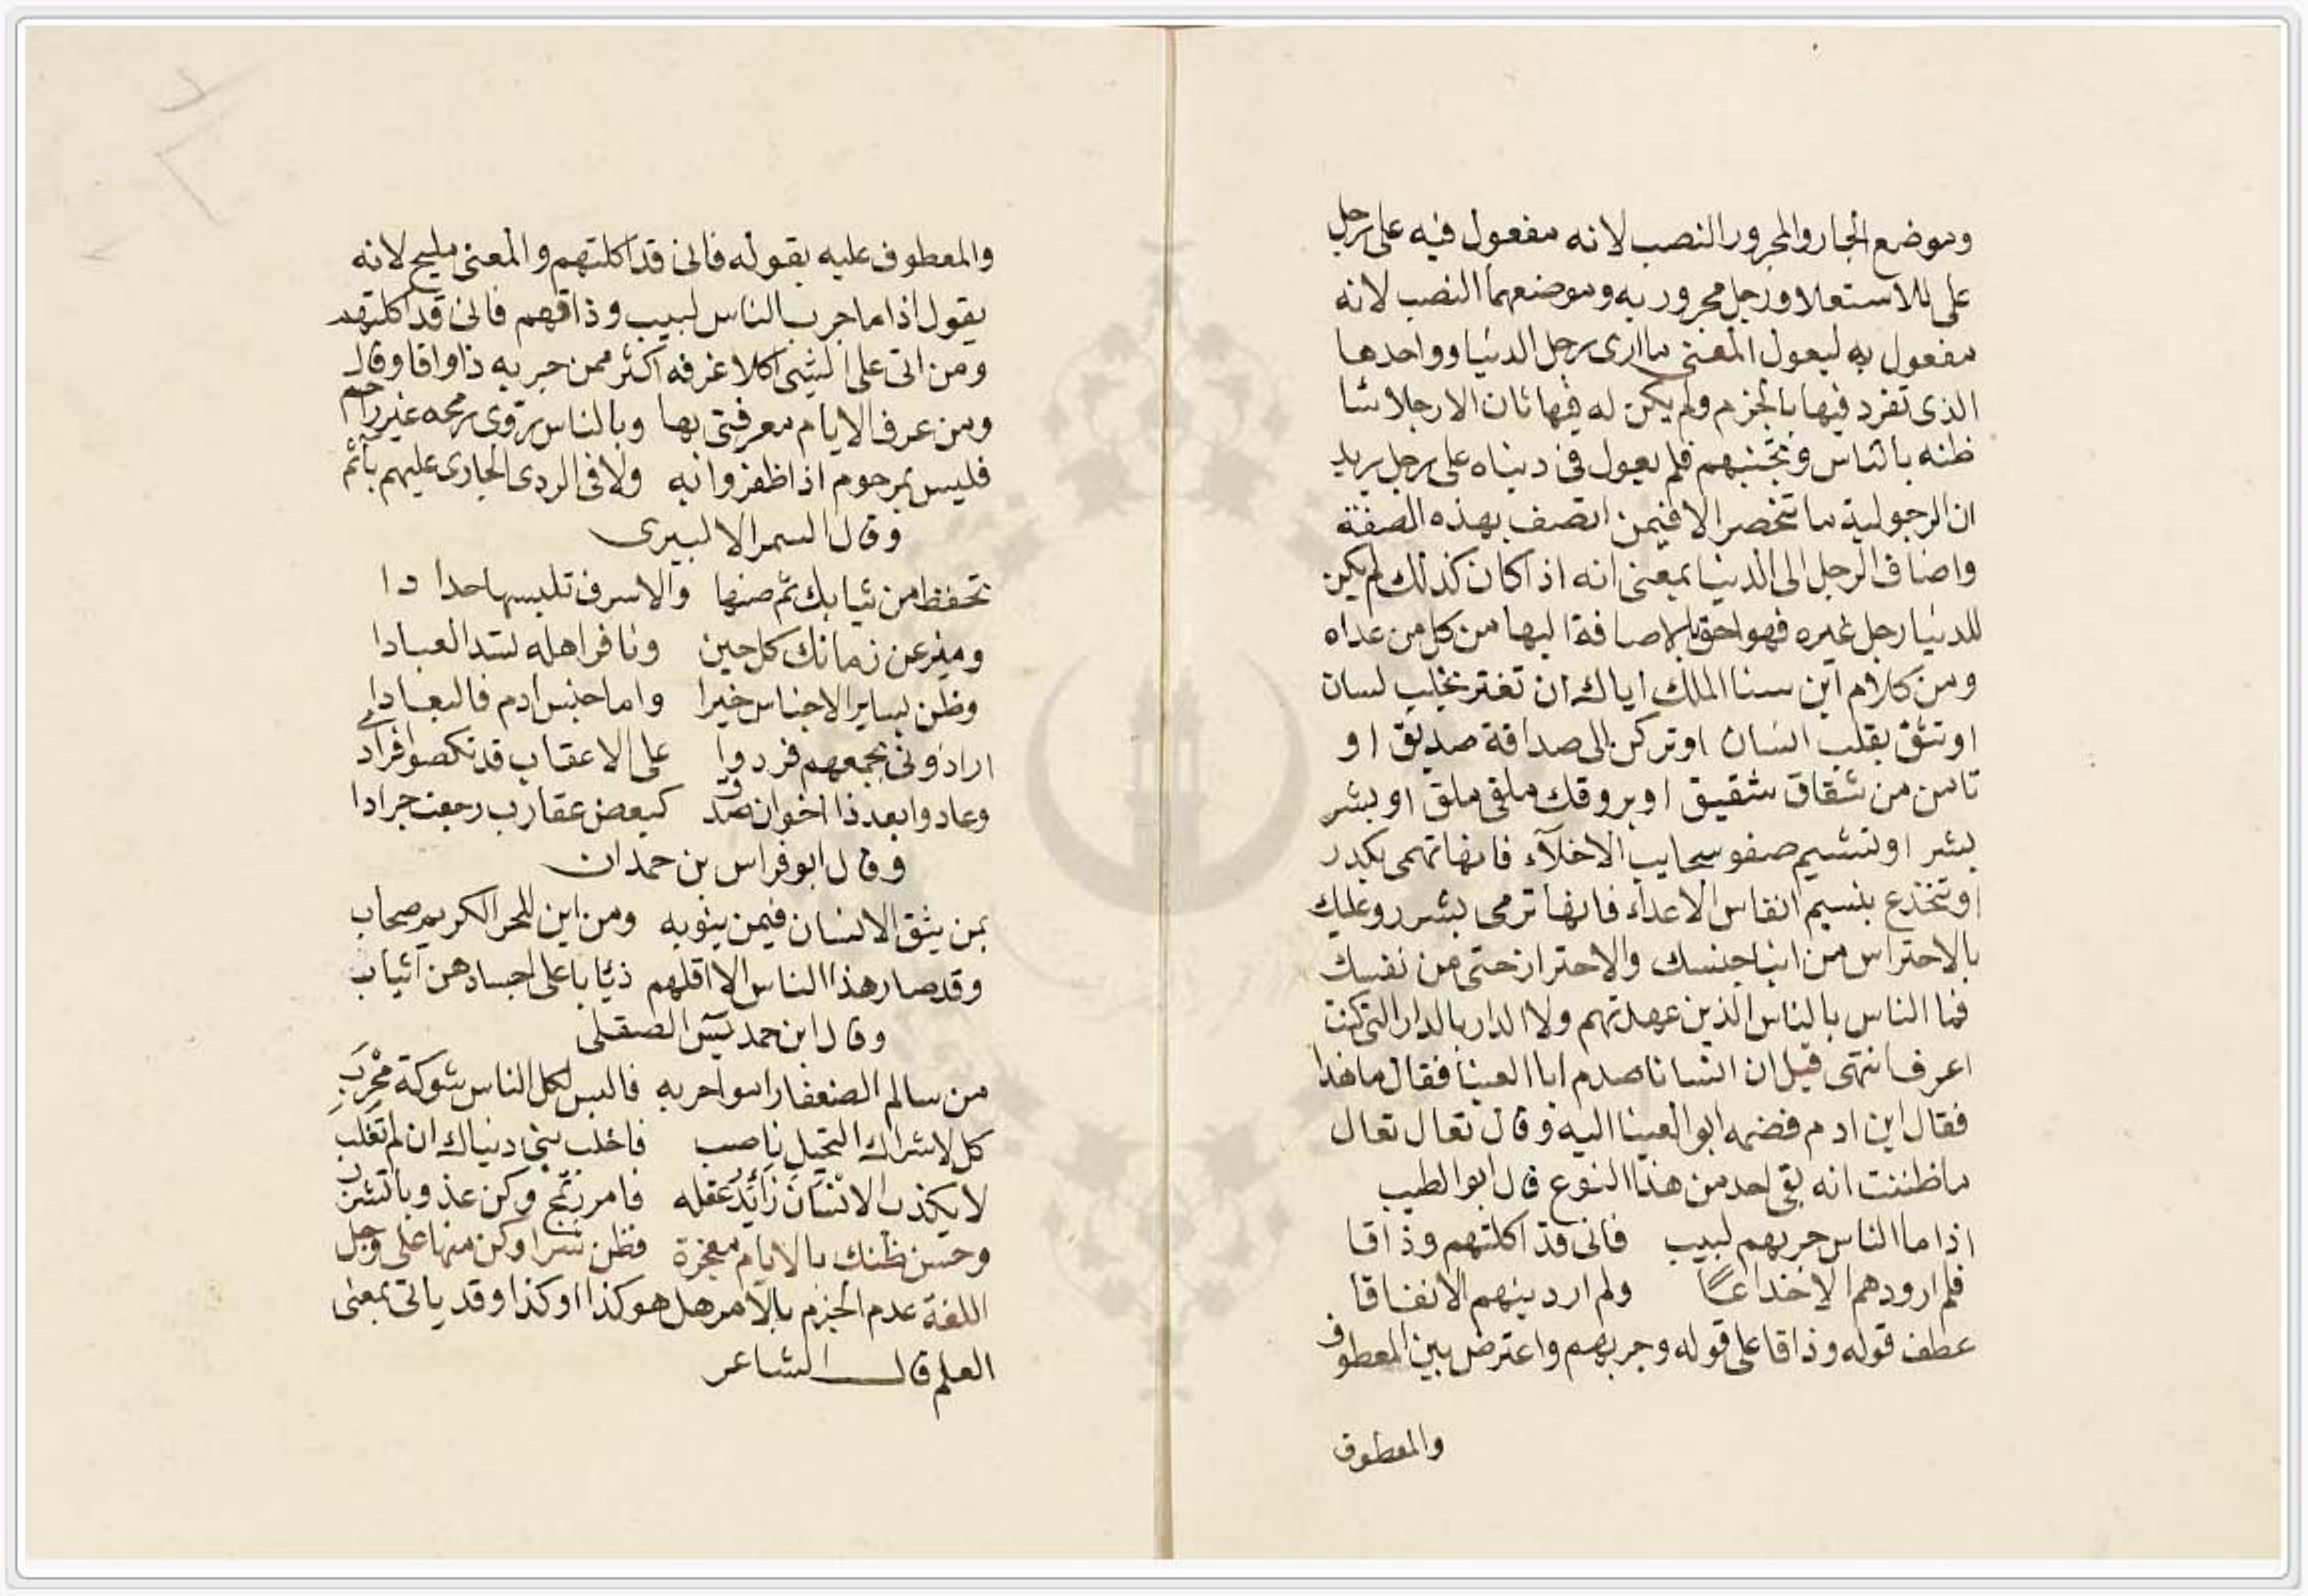 وموضع الجار والمجرور النصب لانه مفعول فيه على رجل
على للاستعلا ورجل مجرور به وموضعهما النصب لانه
مفعول به ليعول المعنى ما ارى رجل الدنيا وواحدها
الذى تفرد فيها بالحزم ولم يكن له فيها ثان الا رجلا شا
ظنه بالناس وتجنبهم فلم يعول فى دنياه على رجل يريد
ان الرجولية ما تنحصر الا فيمن اتصف بهذه الصفة
واضاف الرجل الى الدنيا بمعنى انه اذا كان كذلك لم يكن
للدنيا رجل غيره فهو احق بالاضافة اليها من كل من عداه
ومن كلام ابن سنا الملك اياك ان تغتر بخلب لسان
او تثق بقلب انسان او تركن الى صداقة صديق او
تامن من شقاق شقيق او يروقك ملقى ملق او بشر
بشر او تشيم صفو سحايب الاخلآء فانها تهمى بكدر
او تنخدع بنسيم انفاس الاعداء فانها ترمى بشرر وعليك
بالاحتراس من ابنا جنسك والاحتراز حتى من نفسك
فما الناس بالناس الذين عهدتهم ولا الدار بالدار التى كنت
اعرف انتهى قيل ان انسانا صدم ابا العينا فقال ما هذا
فقال ابن ادم فضمه ابو العينا اليه وقال تعال تعال
ما ظننت انه بقى احد من هذا النوع قال ابو الطيب
اذا ما الناس جربهم لبيب فانى قد اكلتهم وذاقا
فلم ار ودهم الا خداعا ولم ار دينهم الا نفاقا
عطف قوله وذاقا على قوله وجربهم واعترض بين المعطوف
والمعطوف
والمعطوف عليه بقوله فانى قد اكلتهم والمعنى مليح لانه
يقول اذا ما جرب الناس لبيب وذاقهم فانى قد اكلتهم
ومن اتى على الشى اكلا عرفه اكثر ممن جربه ذواقا وقال
ومن عرف الايام معرفتى بها وبالناس روى رمحه غير راحم
فليس بمرحوم اذا ظفروا به ولا فى الردى الجارى عليهم باثم
وقال السمر الالبيرى
تحفظ من ثيابك ثم صنها والا سوف تلبسها حدادا
وميز عن زمانك كل حين ونافر اهله تسد العبادا
وظن بساير الاجناس خيرا واما جنس ادم فالبعادا
ارادونى بجمعهم فردوا على الاعقاب قد نكصوا فرادى
وعادوا بعد ذا اخوان صدق كبعض عقارب رجعت جرادا
وقال ابو فراس بن حمدان
بمن يثق الانسان فيمن ينوبه ومن اين للحر الكريم صحاب
وقد صار هذا الناس الا اقلهم ذئابا على اجسادهن ثياب
وقال ابن حمديس الصقلى
من سالم الضعفا راموا حربه فالبس لكل الناس شوكة محرب
كل لاشراك التحيل ناصب فاخلب بنى دنياك ان لم تغلب
لا يكذب الانسان زائد عقله فامرر تمج وكن عذوبا تشرب
وحسن ظنك بالايام معجزة فظن شرا وكن منها على وجل
اللغة عدم الجزم بالامر هل هو كذا او كذا وقد ياتى بمعنى
العلم قال الشاعر